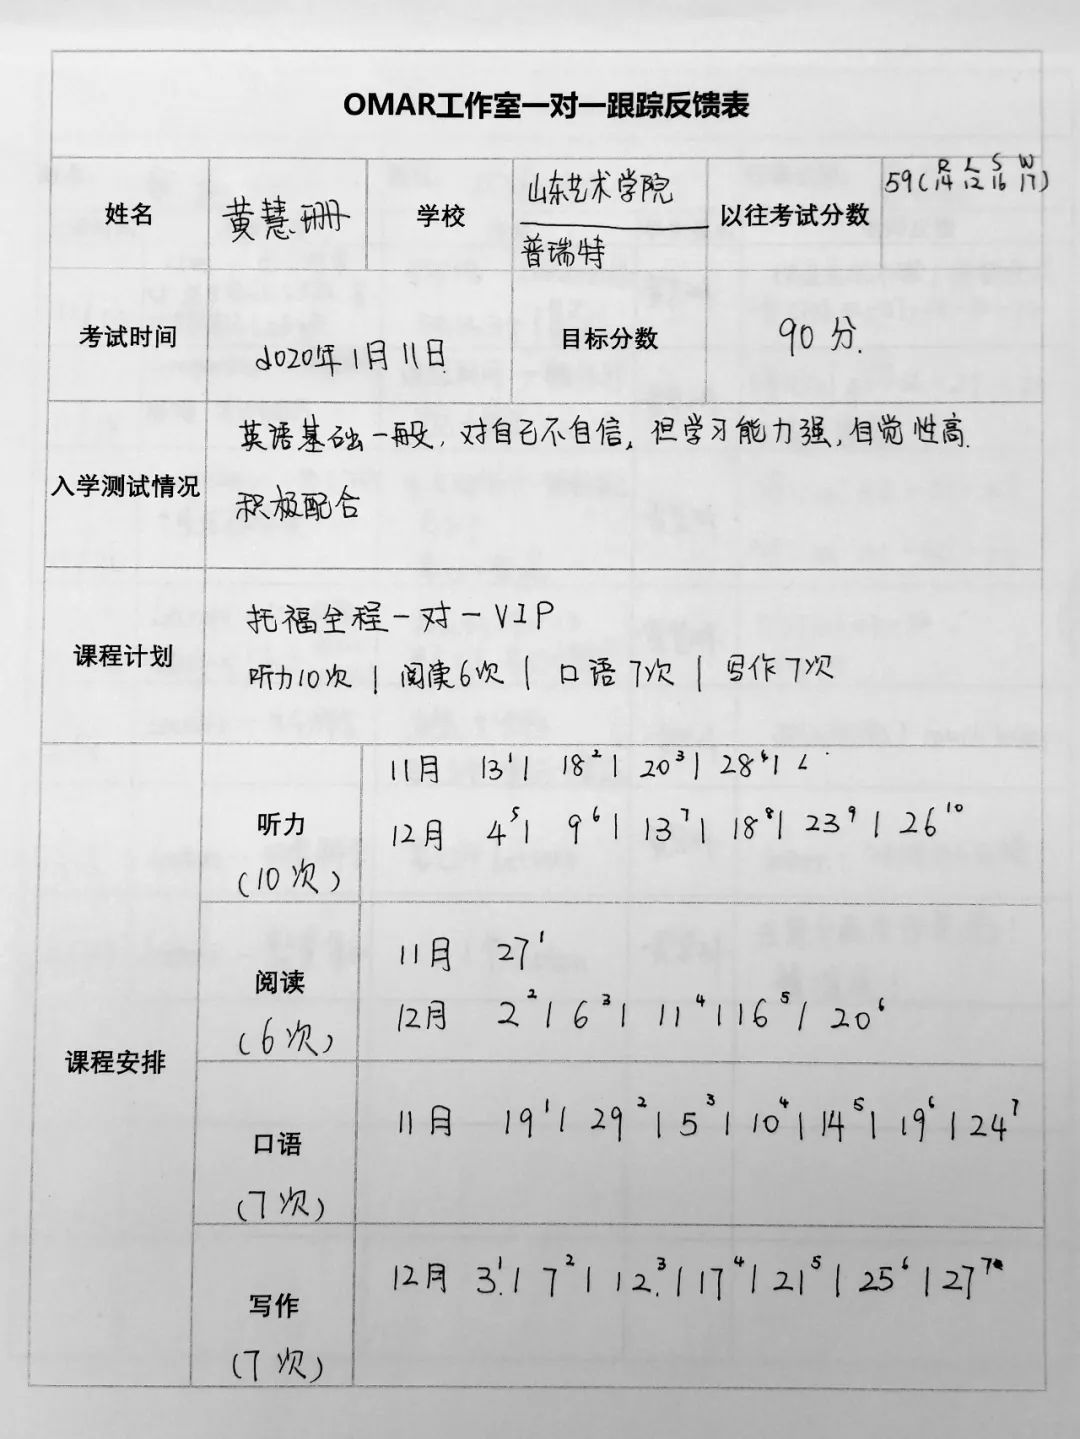 OMAR工作室一对一跟踪反馈表
姓名
黄慧珊
学校
山东艺术学院
普瑞特
以往考试分数
R L S W
59(14 12 16 17)
考试时间
2020年1月11日
目标分数
90分.
入学测试情况
英语基础一般, 对自己不自信, 但学习能力强, 自觉性高.
积极配合
课程计划
托福全程一对一VIP
听力10次 | 阅读6次 | 口语7次 | 写作7次
课程安排
听力
(10次)
11月 13¹ | 18² | 20³ | 28⁴ |
12月 4⁵ | 9⁶ | 13⁷ | 18⁸ | 23⁹ | 26¹⁰
阅读
(6次)
11月 27¹
12月 2² | 6³ | 11⁴ | 16⁵ | 20⁶
口语
(7次)
11月 19¹ | 29² | 5³ | 10⁴ | 14⁵ | 19⁶ | 24⁷
写作
(7次)
12月 3¹ | 7² | 12³ | 17⁴ | 21⁵ | 25⁶ | 27⁷